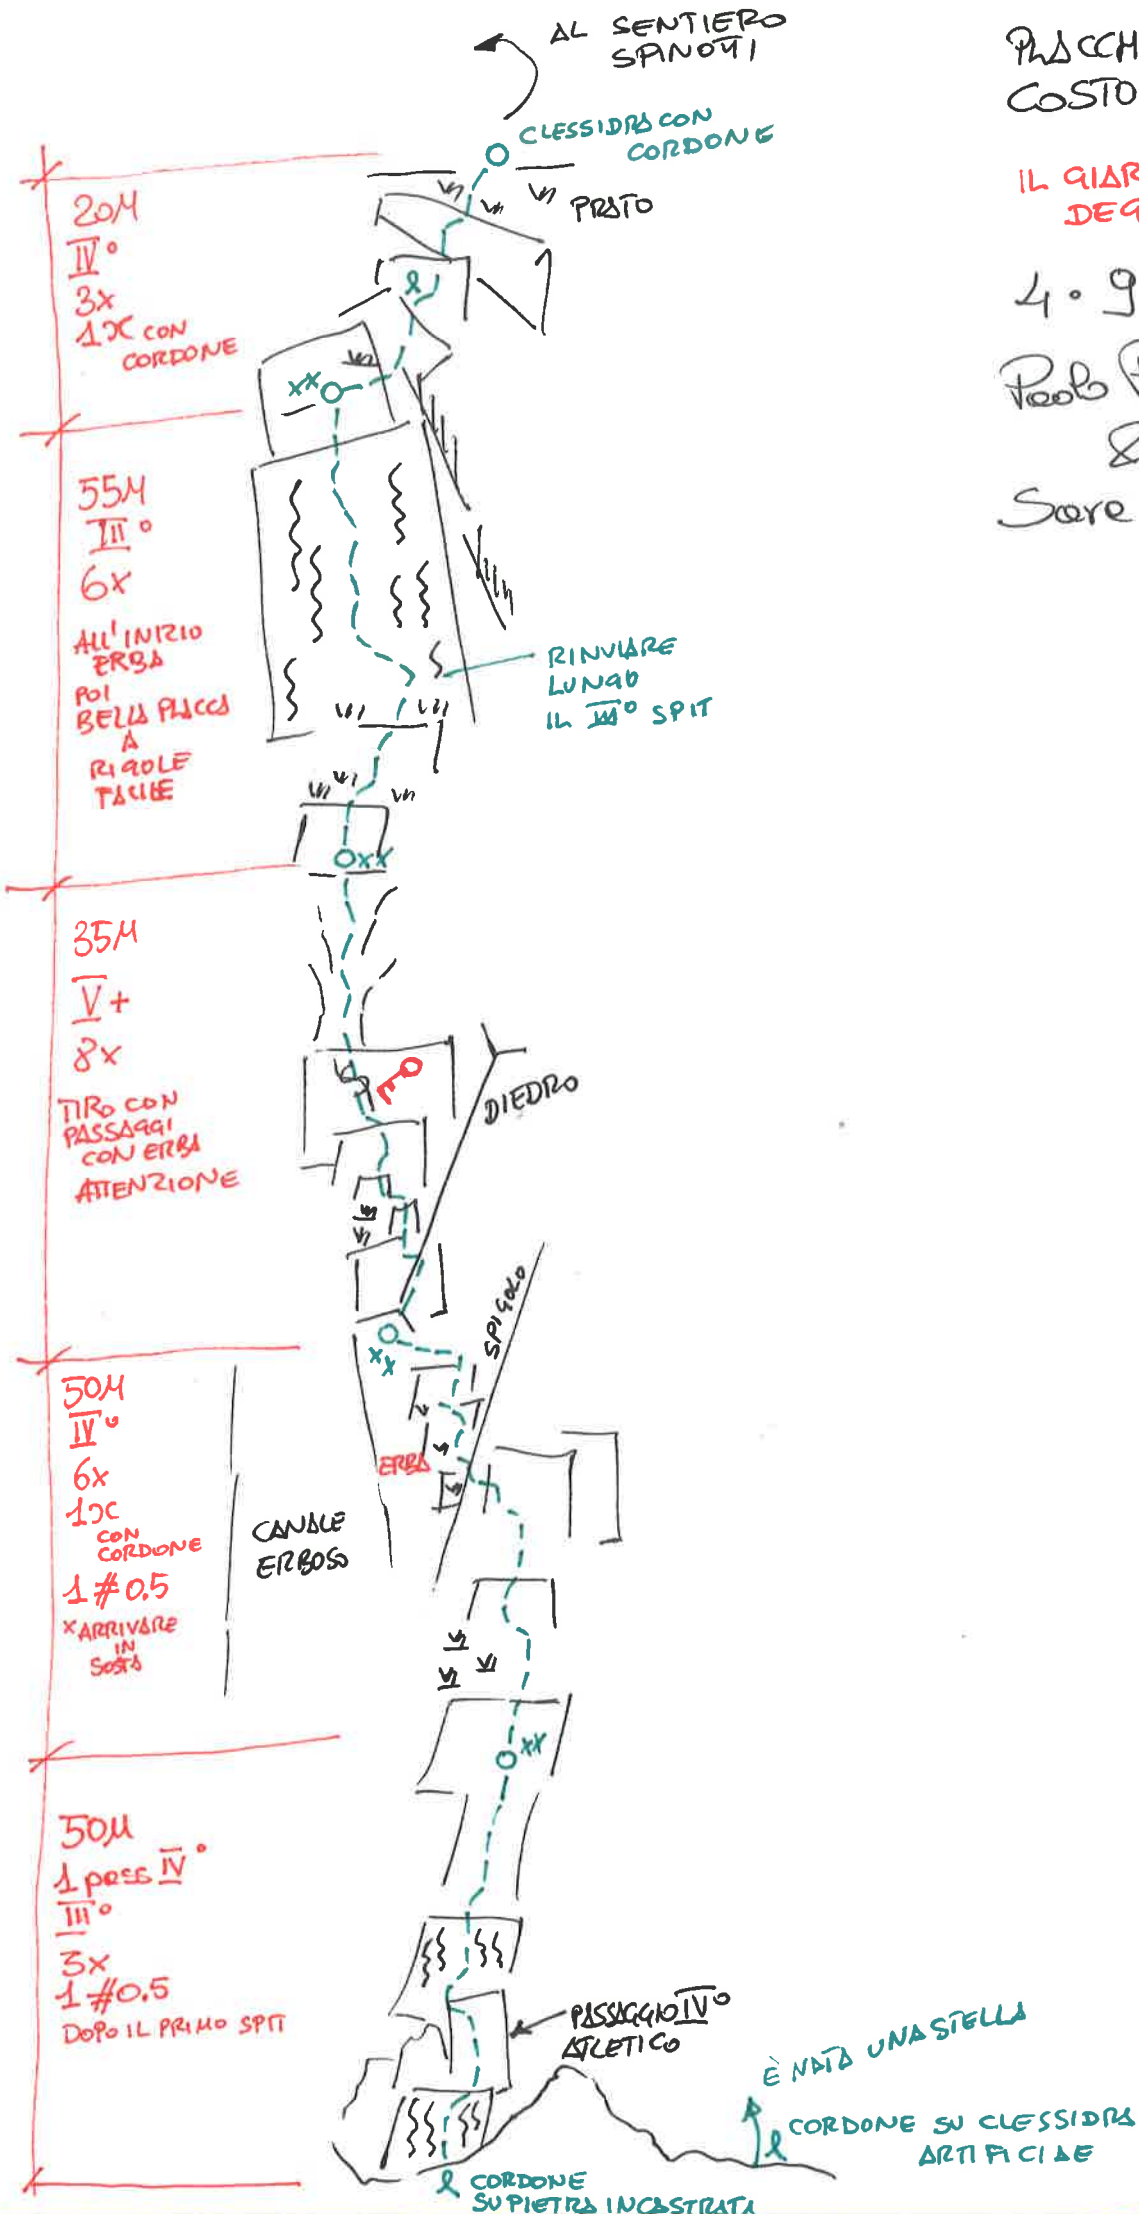 AL SENTIERO
SPINOTTI
CLESSIDRA CON
CORDONE
PRATO
PLACCH
COSTO
IL GIAR
DEG
4 . 9
Paolo P
&
Sara
20M
IV°
3x
1x CON
CORDONE
xx
55M
III°
6x
ALL'INIZIO
ERBA
POI
BELLA PLACCA
A
RIGOLE
FACILE
RINVIARE
LUNGO
IL III° SPIT
xx
35M
V+
8x
TIRO CON
PASSAGGI
CON ERBA
ATTENZIONE
DIEDRO
xx
SPIGOLO
50M
IV°
6x
1x
CON
CORDONE
1 #0.5
x ARRIVARE
IN
SOSTA
CANALE
ERBOSO
ERBA
xx
50M
1 pass IV°
III°
3x
1 #0.5
DOPO IL PRIMO SPIT
PASSAGGIO IV°
ATLETICO
È NATA UNA STELLA
CORDONE SU CLESSIDRA
ARTIFICIAE
CORDONE
SU PIETRA INCASTRATA